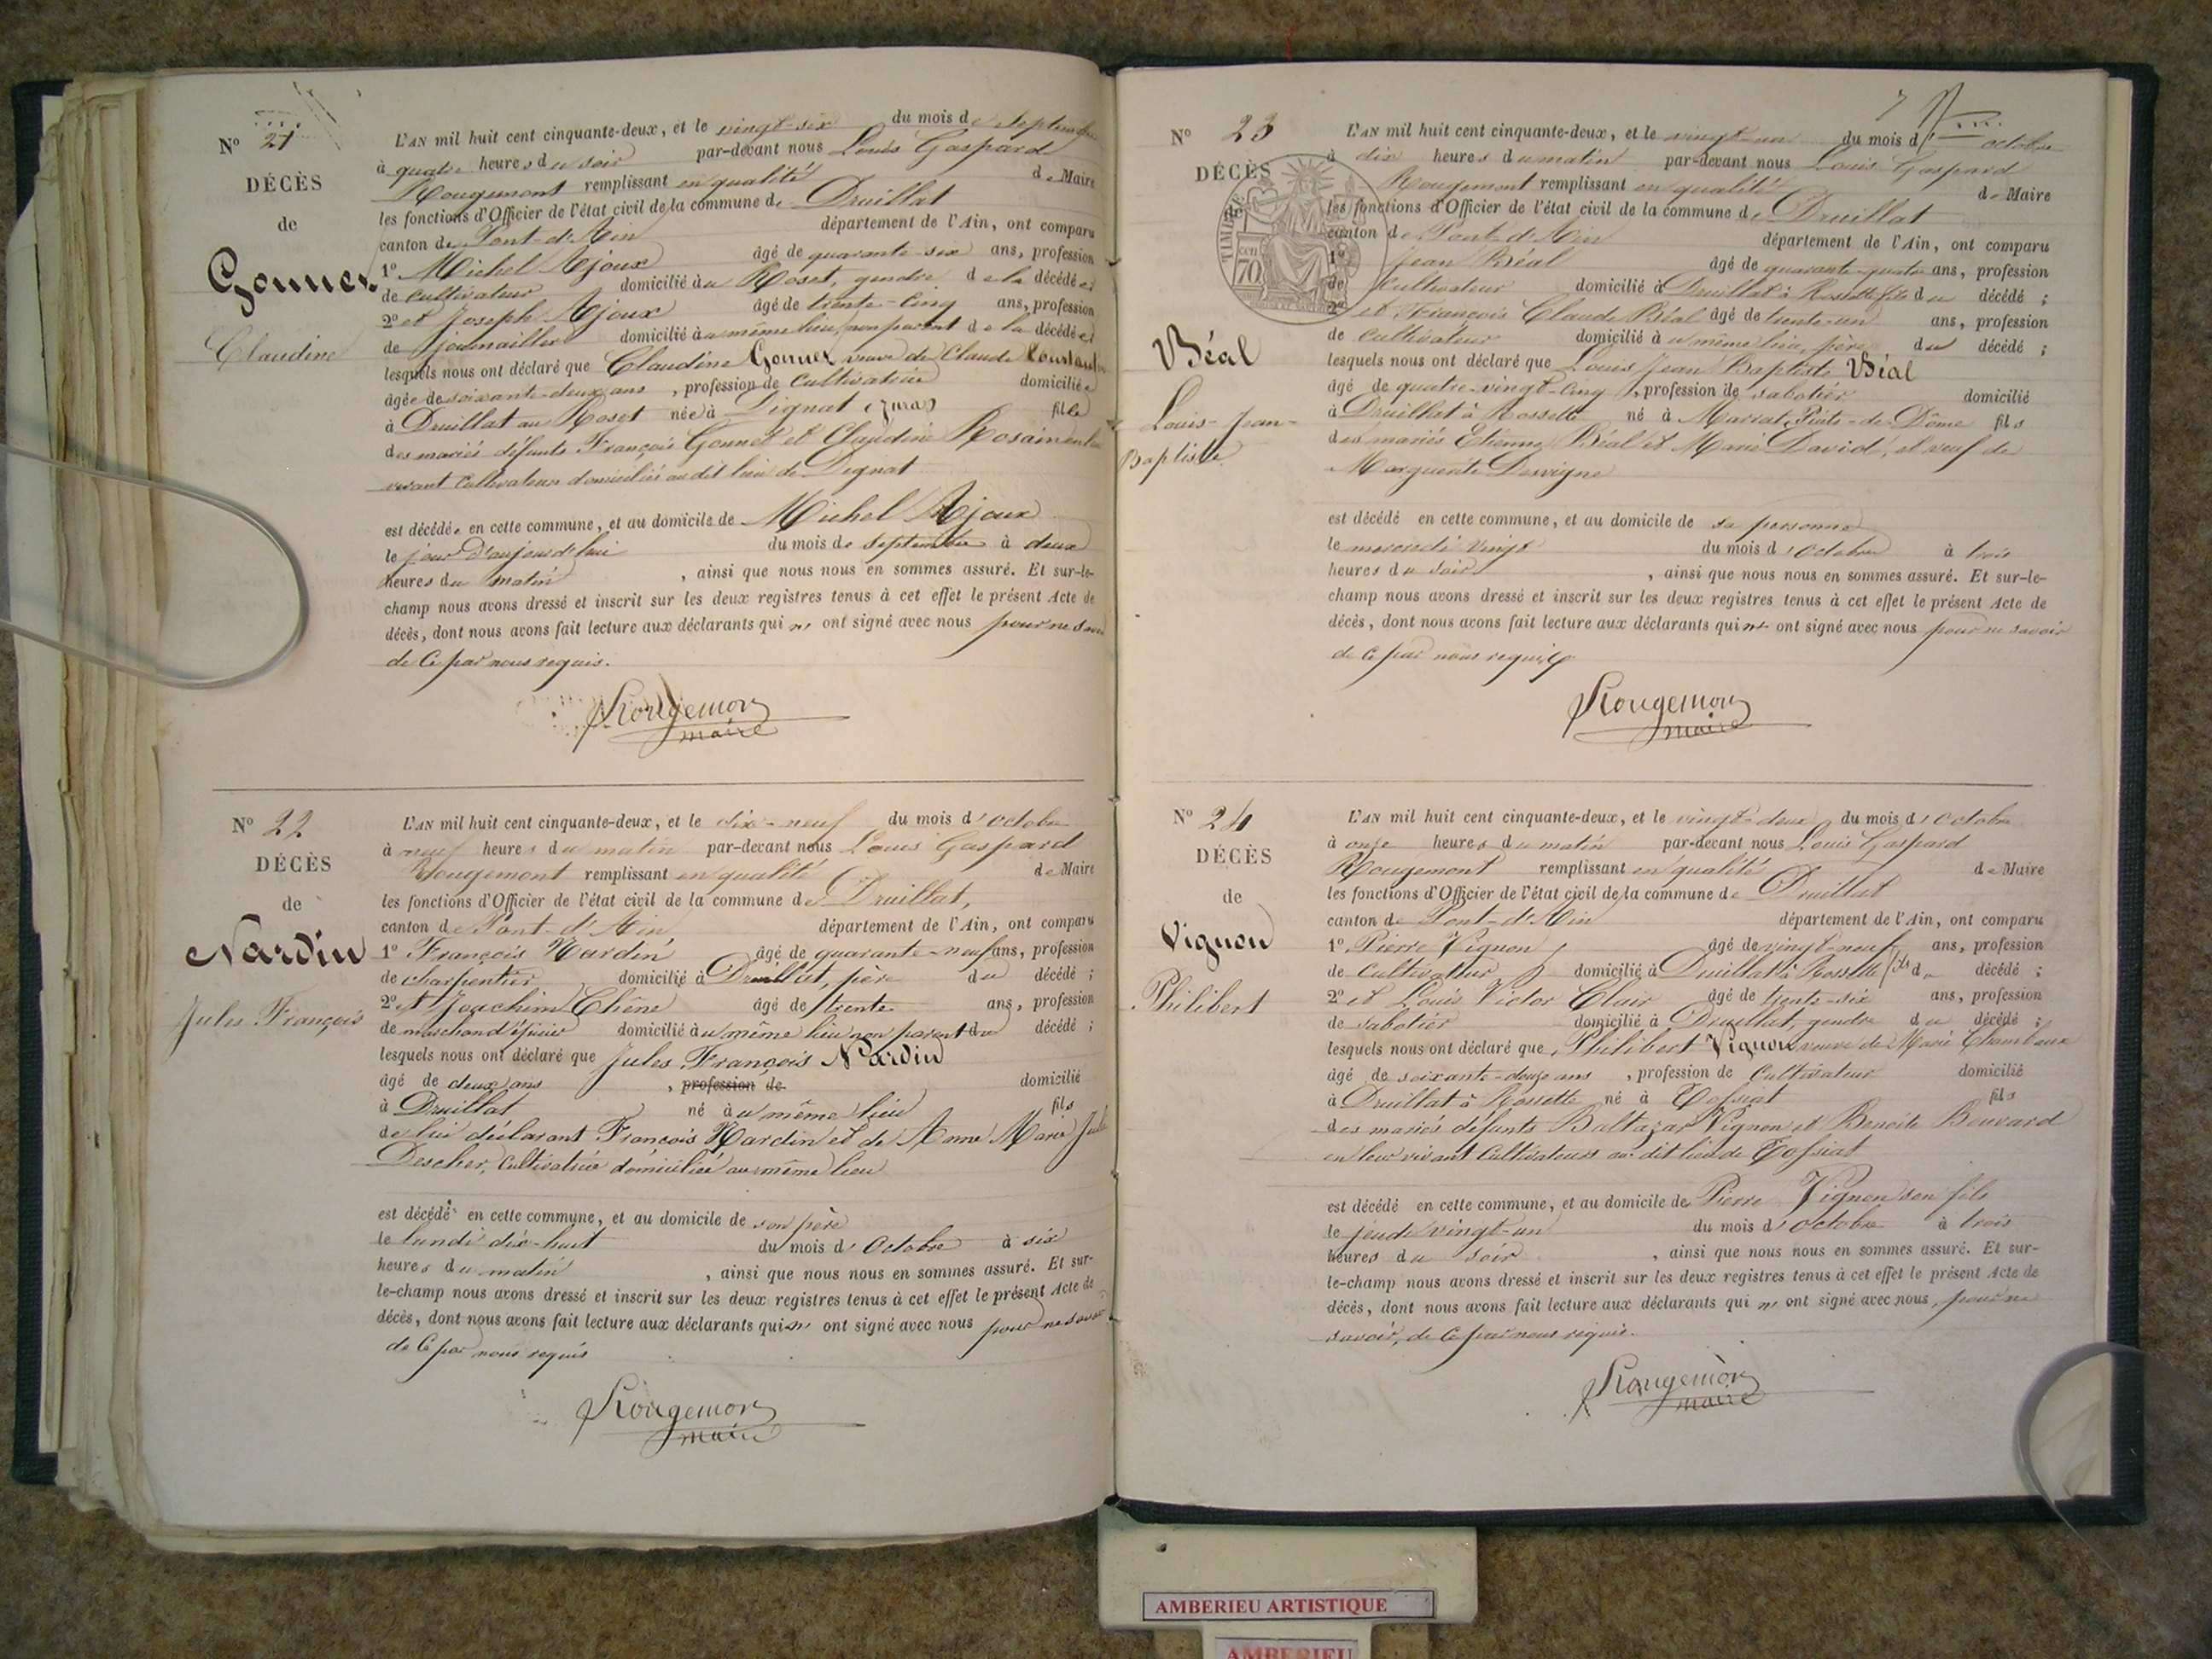 N° 21
DÉCÈS
de
Gonnet
Claudine
L'AN mil huit cent cinquante-deux, et le vingt-six du mois de Septembre
à quatre heures du soir par-devant nous Louis Gaspard
Rougemont remplissant en qualité de Maire
les fonctions d'Officier de l'état civil de la commune de Druillat
canton de Pont-d'Ain département de l'Ain, ont comparu
1° Michel Ajoux âgé de quarante-six ans, profession
de cultivateur domicilié au Roset, gendre de la décédée;
2° et Joseph Ajoux âgé de trente-cinq ans, profession
de journailler domicilié au même lieu, non parent de la décédée;
lesquels nous ont déclaré que Claudine Gonnet veuve de Claude
âgée de soixante-deux ans, profession de cultivatrice domiciliée
à Druillat au Roset née à Dignat (Jura) fille
des mariés défunts François Gonnet et Claudine
vivant cultivateurs domiciliés au dit lieu de Dignat
est décédée en cette commune, et au domicile de Michel Ajoux
le jour d'aujourd'hui du mois de septembre à deux
heures du matin, ainsi que nous nous en sommes assuré. Et sur-le-
champ nous avons dressé et inscrit sur les deux registres tenus à cet effet le présent Acte de
décès, dont nous avons fait lecture aux déclarants qui n'ont signé avec nous pour ne savoir
de ce par nous requis.
Rougemont
maire
N° 22
DÉCÈS
de
Nardin
Jules François
L'AN mil huit cent cinquante-deux, et le dix-neuf du mois d'octobre
à neuf heures du matin par-devant nous Louis Gaspard
Rougemont remplissant en qualité de Maire
les fonctions d'Officier de l'état civil de la commune de Druillat,
canton de Pont-d'Ain département de l'Ain, ont comparu
1° François Nardin âgé de quarante-neuf ans, profession
de charpentier domicilié à Druillat, père du décédé;
2° et Joachim Chêne âgé de trente ans, profession
de marchand d'épicier domicilié au même lieu non parent du décédé;
lesquels nous ont déclaré que Jules François Nardin
âgé de deux ans, profession de domicilié
à Druillat né au même lieu fils
de lui déclarant François Nardin et de Anne Marie
Descher, cultivatrice domiciliée au même lieu
est décédé en cette commune, et au domicile de son père
le lundi dix-huit du mois d'Octobre à six
heures du matin, ainsi que nous nous en sommes assuré. Et sur-
le-champ nous avons dressé et inscrit sur les deux registres tenus à cet effet le présent Acte de
décès, dont nous avons fait lecture aux déclarants qui n'ont signé avec nous pour ne savoir
de ce par nous requis
Rougemont
maire
N° 23
DÉCÈS
de
TIMBRE
70
Béal
Louis-Jean-
Baptiste
L'AN mil huit cent cinquante-deux, et le vingt-un du mois d'octobre
à dix heures du matin par-devant nous Louis Gaspard
Rougemont remplissant en qualité de Maire
les fonctions d'Officier de l'état civil de la commune de Druillat
canton de Pont-d'Ain département de l'Ain, ont comparu
1° Jean Béal âgé de quarante-quatre ans, profession
de Cultivateur domicilié à Druillat à Rossette fils du décédé;
2° et François Claude Béal âgé de trente-un ans, profession
de cultivateur domicilié au même lieu, du décédé;
lesquels nous ont déclaré que Louis Jean Baptiste Béal
âgé de quatre-vingt-cinq, profession de sabotier domicilié
à Druillat à Rossette né à Marrat Puits-de-Dôme fils
des mariés Etienne Béal et Marie David, et veuf de
Marguerite Desvigne
est décédé en cette commune, et au domicile de sa personne
le mercredi vingt du mois d'Octobre à trois
heures du soir, ainsi que nous nous en sommes assuré. Et sur-le-
champ nous avons dressé et inscrit sur les deux registres tenus à cet effet le présent Acte de
décès, dont nous avons fait lecture aux déclarants qui n'ont signé avec nous pour ne savoir
de ce par nous requis
Rougemont
maire
N° 24
DÉCÈS
de
Vignon
Philibert
L'AN mil huit cent cinquante-deux, et le vingt-deux du mois d'Octobre
à onze heures du matin par-devant nous Louis Gaspard
Rougemont remplissant en qualité de Maire
les fonctions d'Officier de l'état civil de la commune de Druillat
canton de Pont-d'Ain département de l'Ain, ont comparu
1° Pierre Vignon âgé de vingt-neuf ans, profession
de cultivateur domicilié à Druillat à Rossette fils du décédé;
2° et Louis Victor Clair âgé de trente-six ans, profession
de sabotier domicilié à Druillat, gendre du décédé;
lesquels nous ont déclaré que Philibert Vignon veuve de Marie Chambaux
âgé de soixante-douze ans, profession de Cultivateur domicilié
à Druillat à Rossette né à Tossiat fils
des mariés défunts Baltazar Vignon et Benoite Bouvard
en leur vivant cultivateurs au dit lieu de Tossiat
est décédé en cette commune, et au domicile de Pierre Vignon son fils
le jeudi vingt-un du mois d'Octobre à trois
heures du soir, ainsi que nous nous en sommes assuré. Et sur-
le-champ nous avons dressé et inscrit sur les deux registres tenus à cet effet le présent Acte de
décès, dont nous avons fait lecture aux déclarants qui n'ont signé avec nous, pour ne
savoir, de ce par nous requis.
Rougemont
maire
AMBERIEU ARTISTIQUE
AMBERIEU